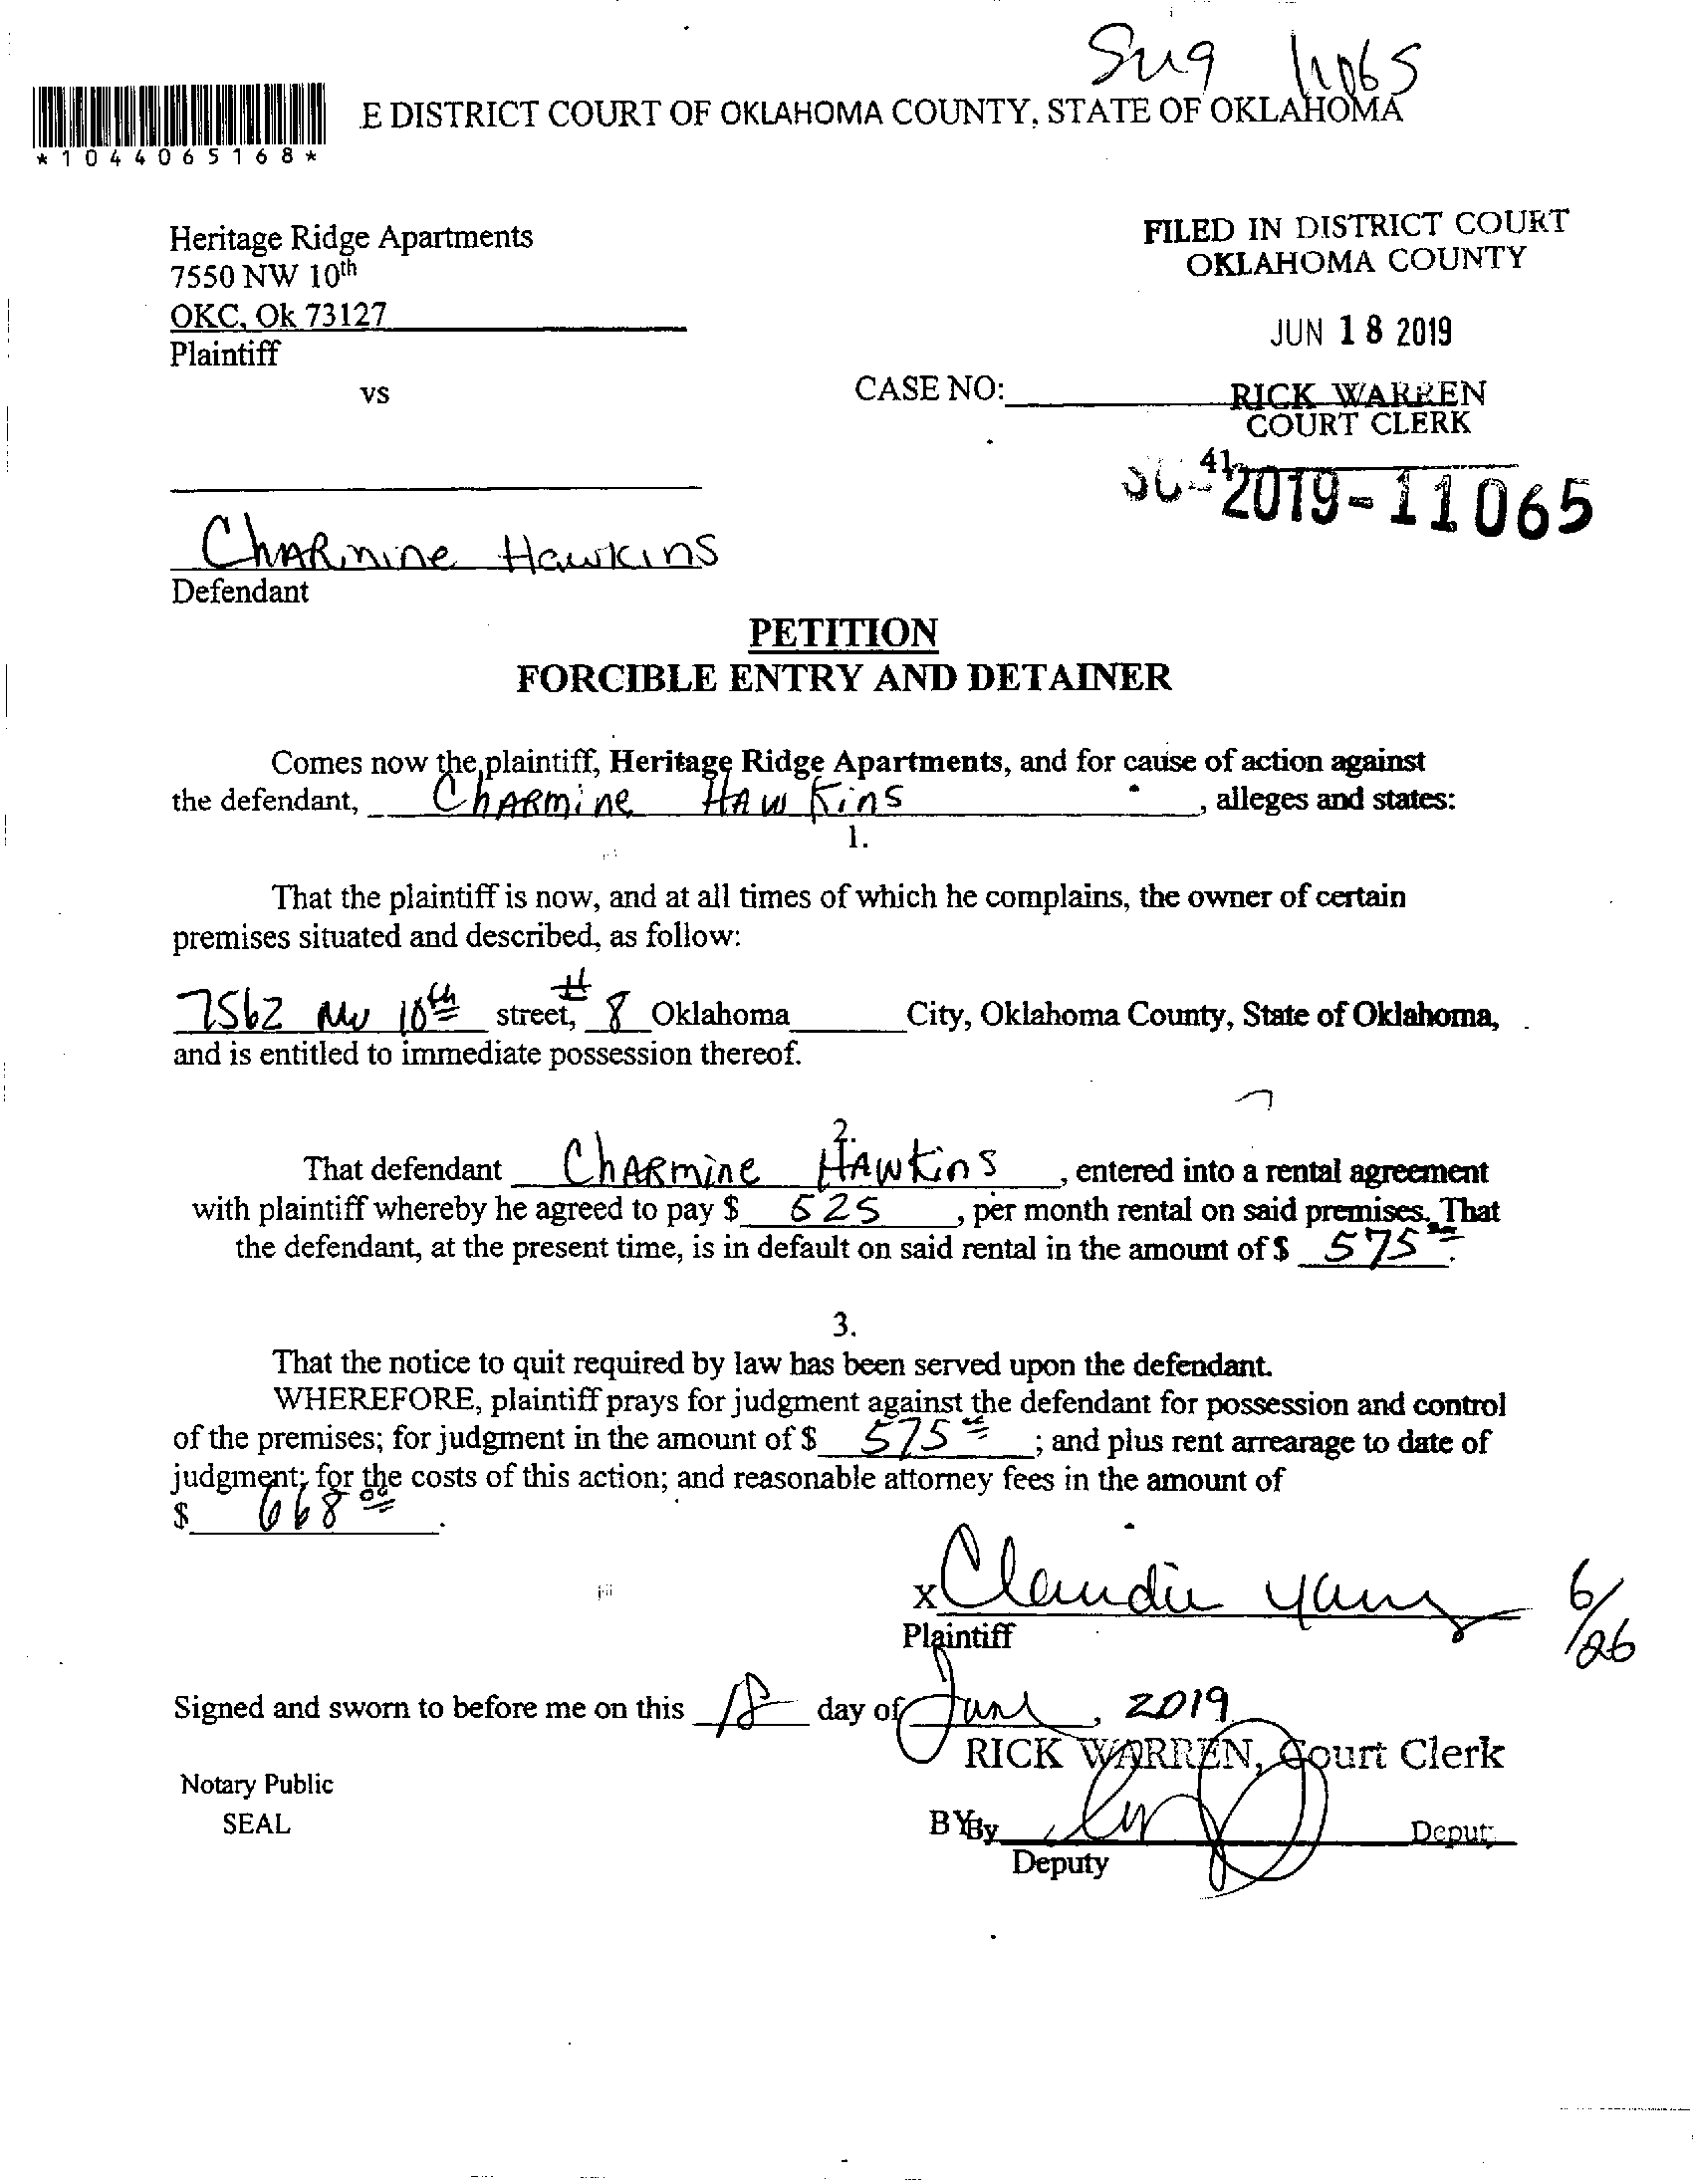 E DISTRICT COURT OF OKLAHOMA COUNTY, STATE OF OKLAHOMA
*1044065168*
Heritage Ridge Apartments
7550 NW 10th
OKC, Ok 73127
Plaintiff
vs
FILED IN DISTRICT COURT
OKLAHOMA COUNTY
JUN 18 2019
CASE NO:
RICK WARREN
COURT CLERK
41
2019-11065
Charmine Hawkins
Defendant
PETITION
FORCIBLE ENTRY AND DETAINER
Comes now the plaintiff, Heritage Ridge Apartments, and for cause of action against
the defendant, Charmine Hawkins, alleges and states:
1.
That the plaintiff is now, and at all times of which he complains, the owner of certain
premises situated and described, as follow:
7562 NW 10th street, #8 Oklahoma City, Oklahoma County, State of Oklahoma,
and is entitled to immediate possession thereof.
2.
That defendant Charmine Hawkins, entered into a rental agreement
with plaintiff whereby he agreed to pay $ 625, per month rental on said premises. That
the defendant, at the present time, is in default on said rental in the amount of $ 575.
3.
That the notice to quit required by law has been served upon the defendant.
WHEREFORE, plaintiff prays for judgment against the defendant for possession and control
of the premises; for judgment in the amount of $ 575; and plus rent arrearage to date of
judgment; for the costs of this action; and reasonable attorney fees in the amount of
$ 668 00.
x Claudia
Plaintiff
6/26
Signed and sworn to before me on this 18 day of June, 2019
RICK WARREN, Court Clerk
Notary Public
SEAL
BY By
Deputy